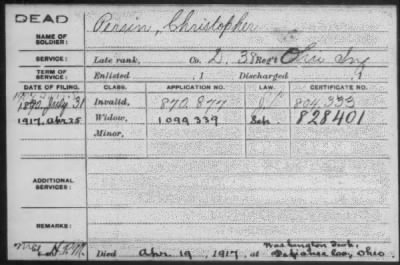 DEAD
NAME OF SOLDIER: Persin, Christopher
SERVICE: Late rank, Co. D, 38 Reg't Ohio Inf
TERM OF SERVICE: Enlisted , 1 Discharged , 1
DATE OF FILING. CLASS. APPLICATION NO. LAW. CERTIFICATE NO.
1890, July 31 Invalid, 870,877 804,333
1917, Apr 25 Widow, 1099339 828401
Minor,
ADDITIONAL SERVICES:
REMARKS:
Died Apr. 19, 1917, at Washington Twsh.
Defiance Co., Ohio.